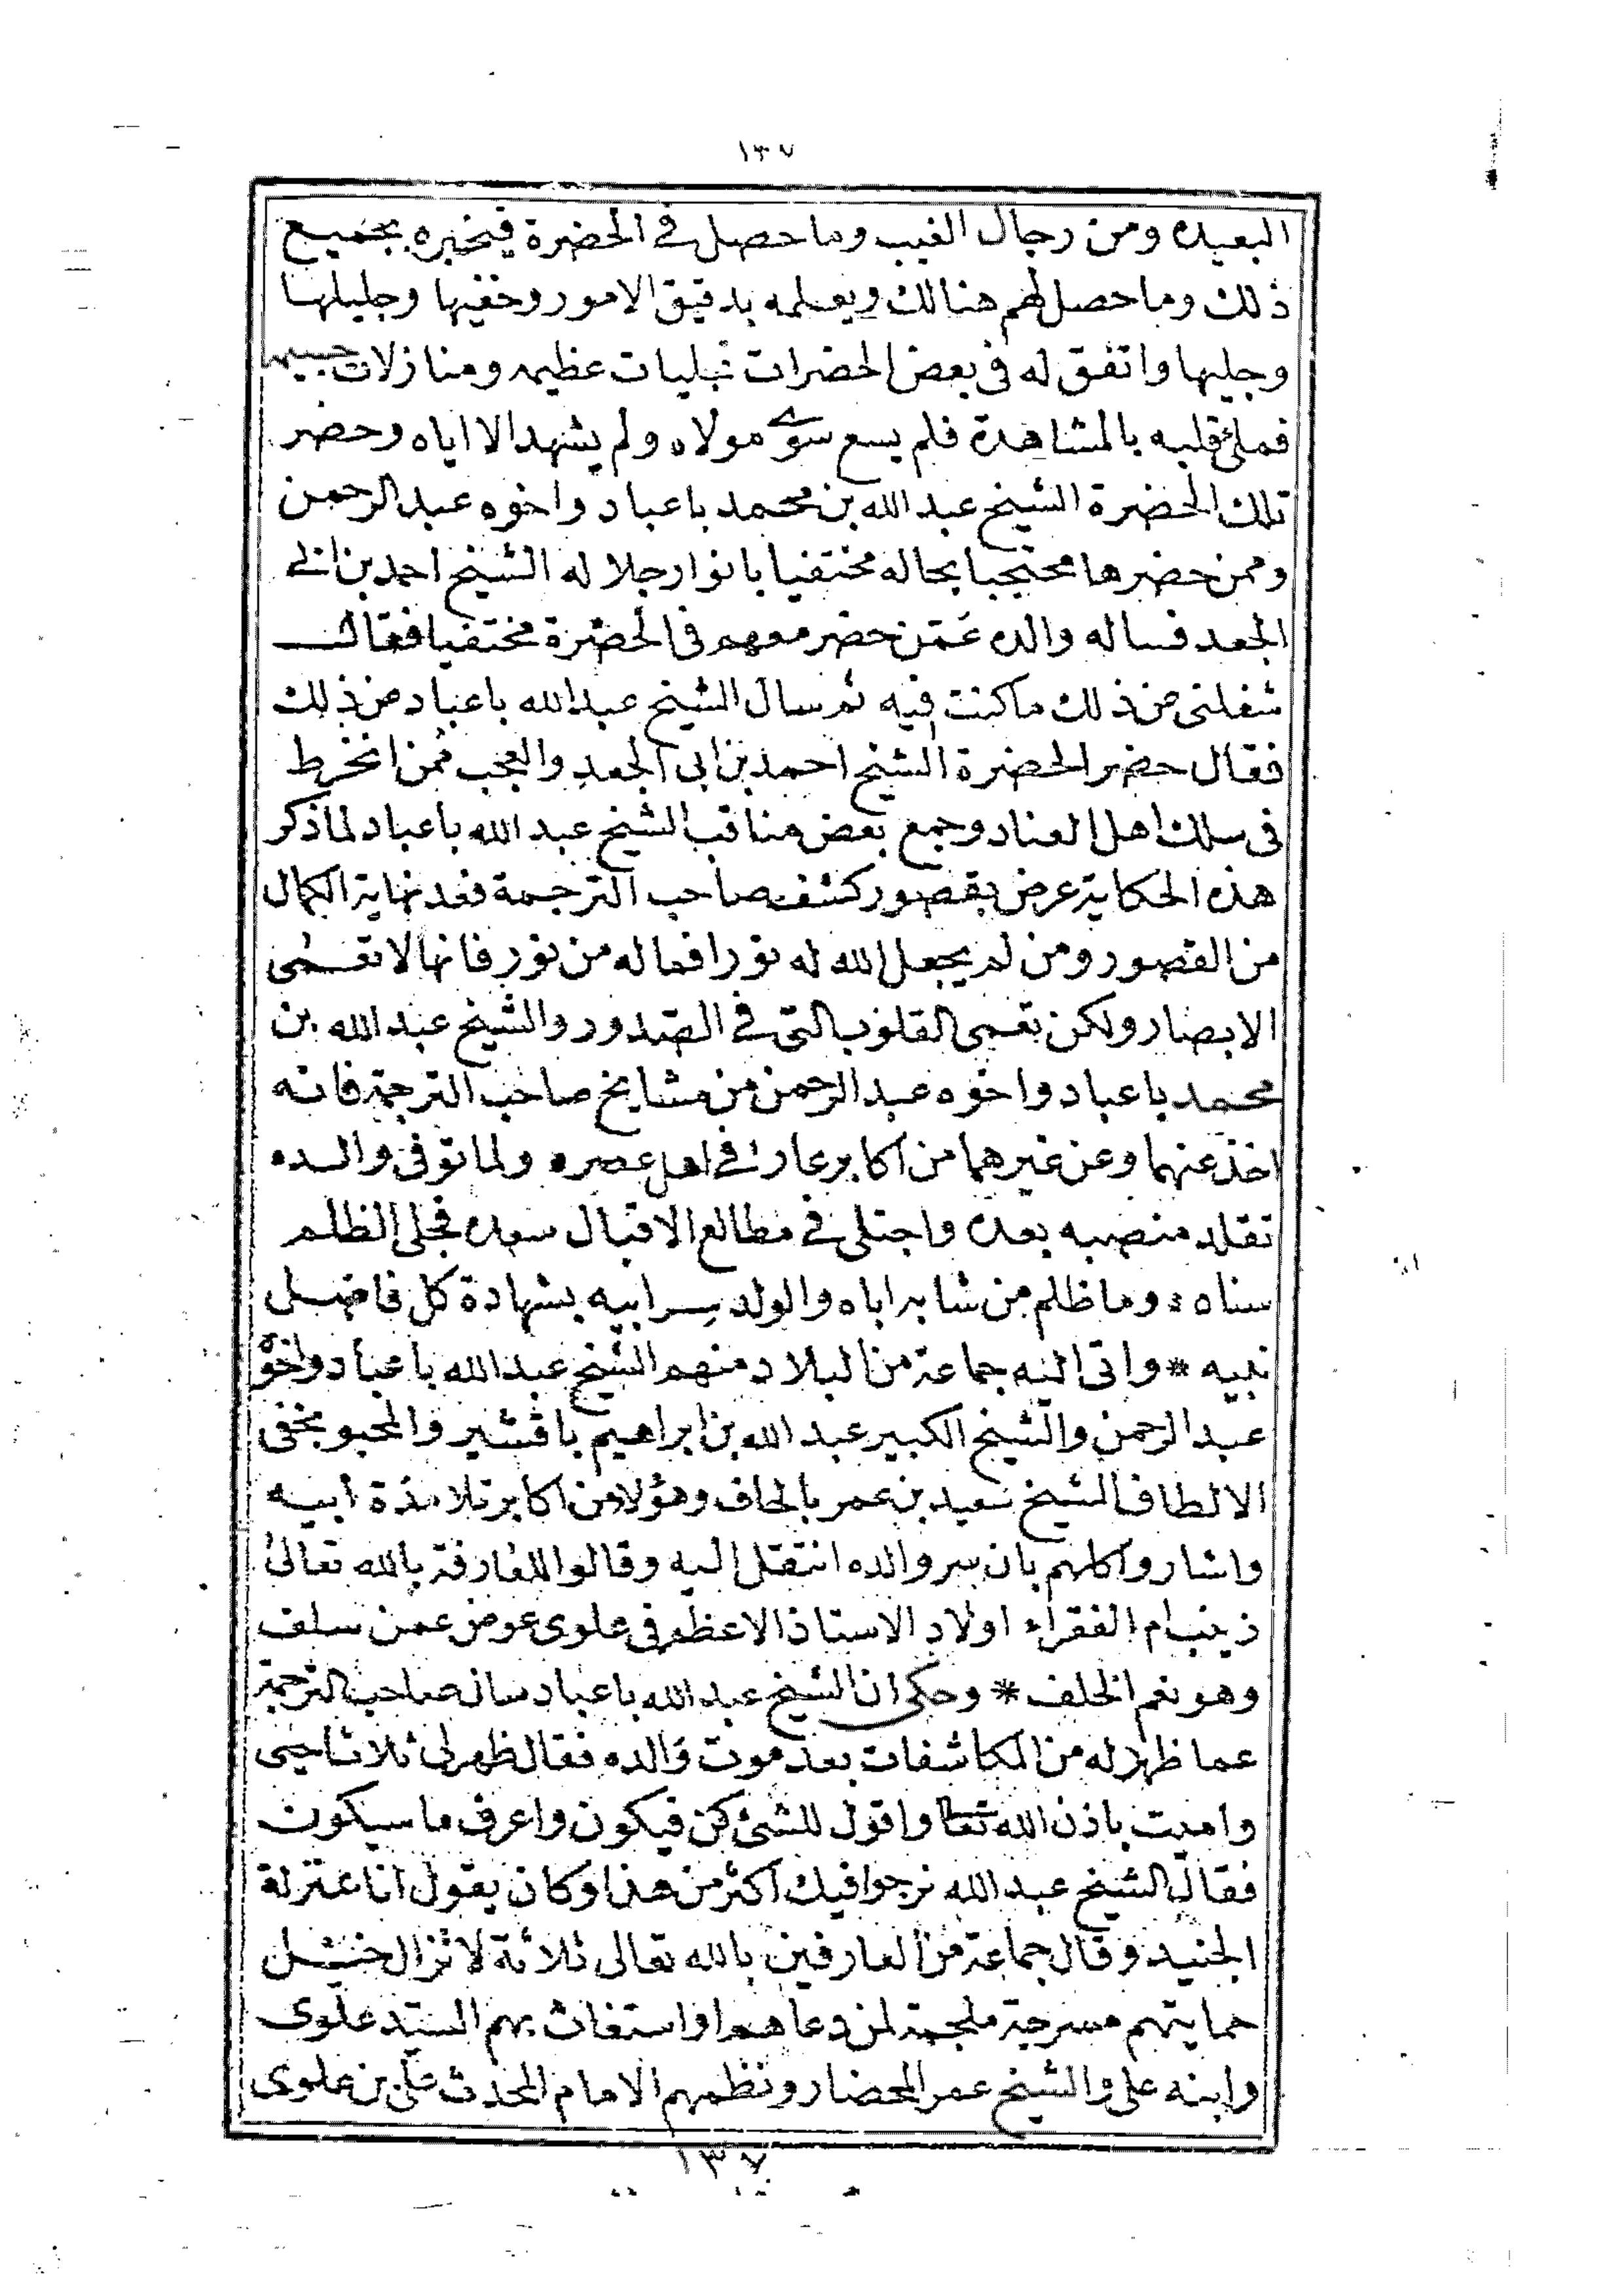 ١٣٧
البعيده ومن رجال الغيب وما حصل في الحضرة فيخبره بجميع
ذلك وما حصل لهم هنالك ويعلمه بدقيق الامور وخفيها وجليلها
وجليها واتفق له في بعض الحضرات تجليات عظيمه ومنازلات جسيمه
فملئ قلبه بالمشاهدة فلم يسع سوى مولاه ولم يشهد الا اياه وحضر
تلك الحضرة الشيخ عبد الله بن محمد باعباد واخوه عبد الرحمن
وممن حضرها محتجبا بحاله مختفيا بانوار جلاله الشيخ احمد بن ابي
الجعد فساله والده عمّن حضر معهم في الحضرة مختفيا فقال
شغلني عن ذلك ما كنت فيه ثم سال الشيخ عبد الله باعباد عن ذلك
فقال حضر الحضرة الشيخ احمد بن ابي الجعد والعجب ممن انخرط
في سلك اهل العناد وجمع بعض مناقب الشيخ عبد الله باعباد لما ذكر
هذه الحكاية عرض بقصور كشف صاحب الترجمة فعد نهاية الكمال
من القصور ومن لم يجعل الله له نورا فما له من نور فانها لا تعمى
الابصار ولكن تعمى القلوب التي في الصّدور والشيخ عبد الله بن
محمد باعباد واخوه عبد الرحمن من مشايخ صاحب الترجمة فانه
اخذ عنهما وعن غيرهما من اكابر عارفي اهل عصره ولما توفى والده
تقلد منصبه بعده واجتلى في مطالع الاقبال سعده فجلى الظلم
سناه * وما ظلم من شابه اباه والولد سر ابيه بشهادة كل فاضل
نبيه * واتى اليه جماعة من البلاد منهم الشيخ عبد الله باعباد واخوه
عبد الرحمن والشيخ الكبير عبد الله بن ابراهيم باقشير والمحبو بخفى
الالطاف الشيخ سعيد بن عمر بالحاف وهؤلاء من اكابر تلامذة أبيه
واشاروا كلهم بان سر والده انتقل اليه وقالوا للعارفة بالله تعالى
زينب ام الفقراء اولاد الاستاذ الاعظم في علوى عوض عمن سلف
وهو نعم الخلف * وحكى ان الشيخ عبد الله باعباد سال صاحب الترجمة
عما ظهر له من المكاشفات بعد موت والده فقال ظهر لى ثلاث احيى
واميت باذن الله تعا واقول للشئ كن فيكون واعرف ما سيكون
فقال الشيخ عبد الله نرجوا فيك اكثر من هذا وكان يقول انا بمنزلة
الجنيد وقال جماعة من العارفين بالله تعالى ثلاثة لا تزال خيل
حمايتهم مسرجة ملجمة لمن دعاهم او استغاث بهم السيّد علوى
وابنه على والشيخ عمر المحضار ونظمهم الامام المحدث على بن علوى
١٣٧